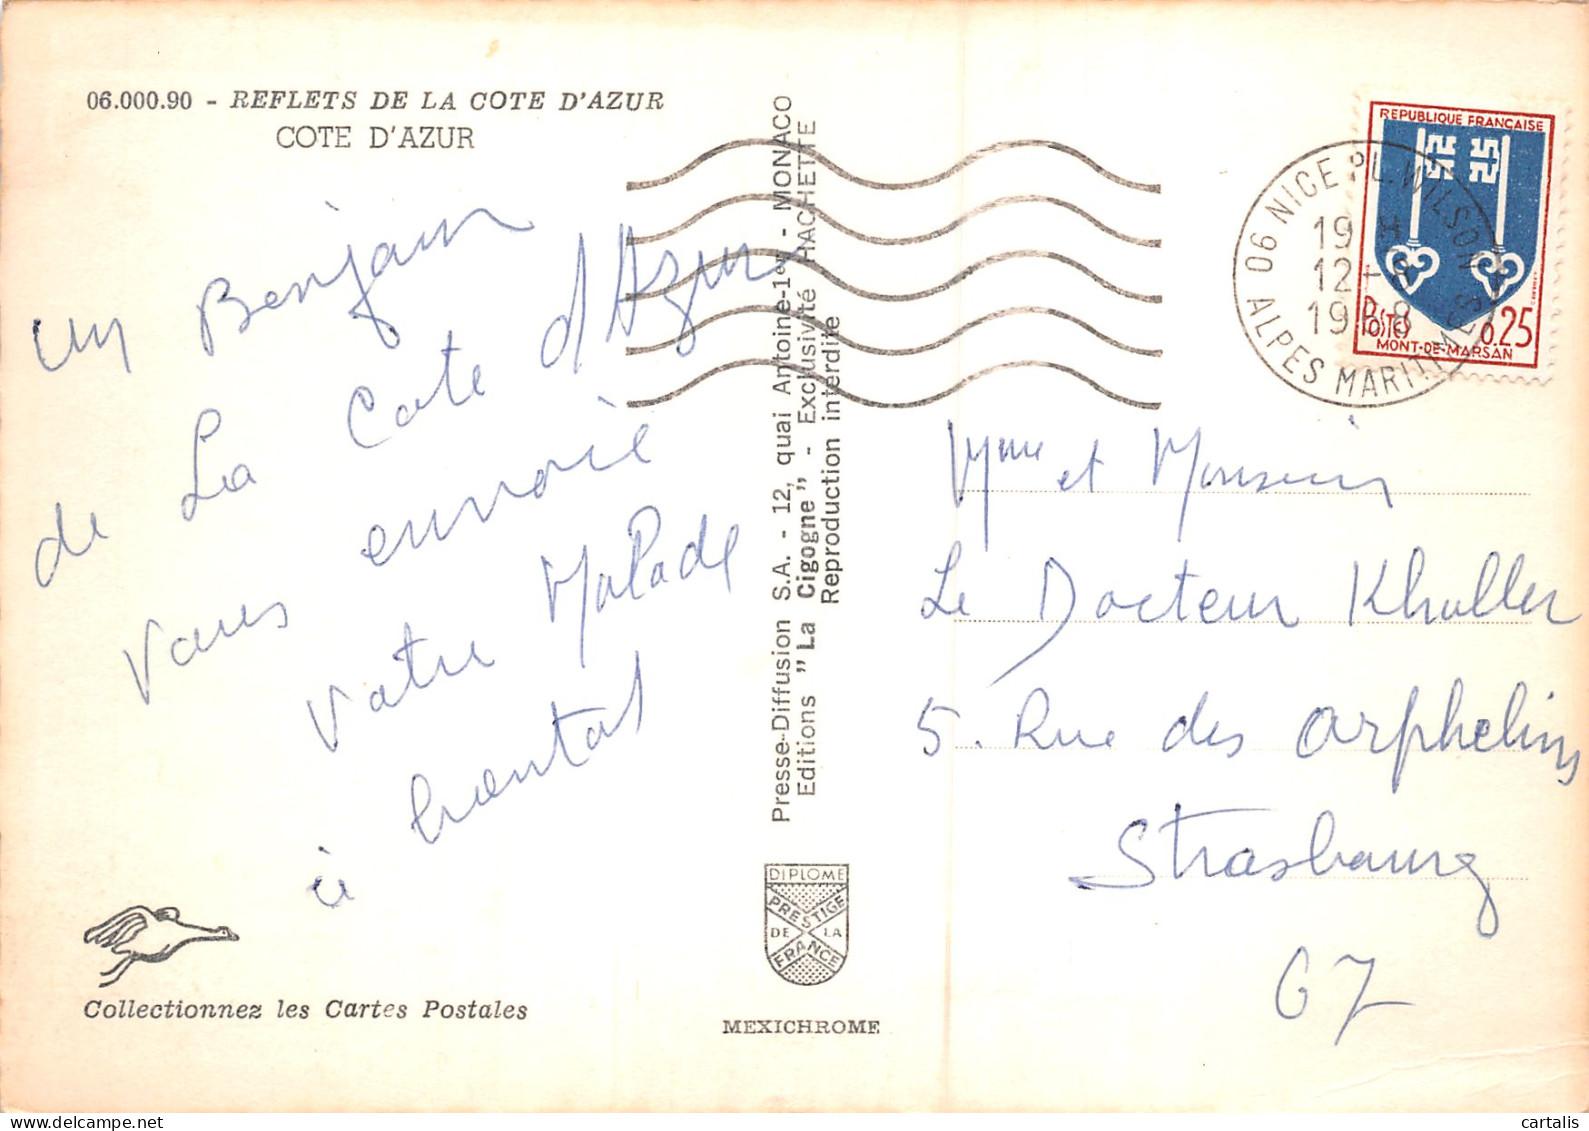 06.000.90 - REFLETS DE LA COTE D'AZUR
COTE D'AZUR
un Bonjour
de La Cote d'Azur
vous envoie
votre Malade
à bientot
Collectionnez les Cartes Postales
Presse-Diffusion S.A. - 12, quai Antoine-1er - MONACO
Editions "La Cigogne" - Exclusivité HACHETTE
Reproduction interdite
DIPLOME
PRESTIGE
DE LA
FRANCE
MEXICHROME
REPUBLIQUE FRANÇAISE
POSTES
0,25
MONT-DE-MARSAN
06 NICE PL. WILSON
19 H
12-8
1968
ALPES MARITIMES
Mme et Monsieur
Le Docteur Khuller
5. Rue des Orphelins
Strasbourg
67
cartalis